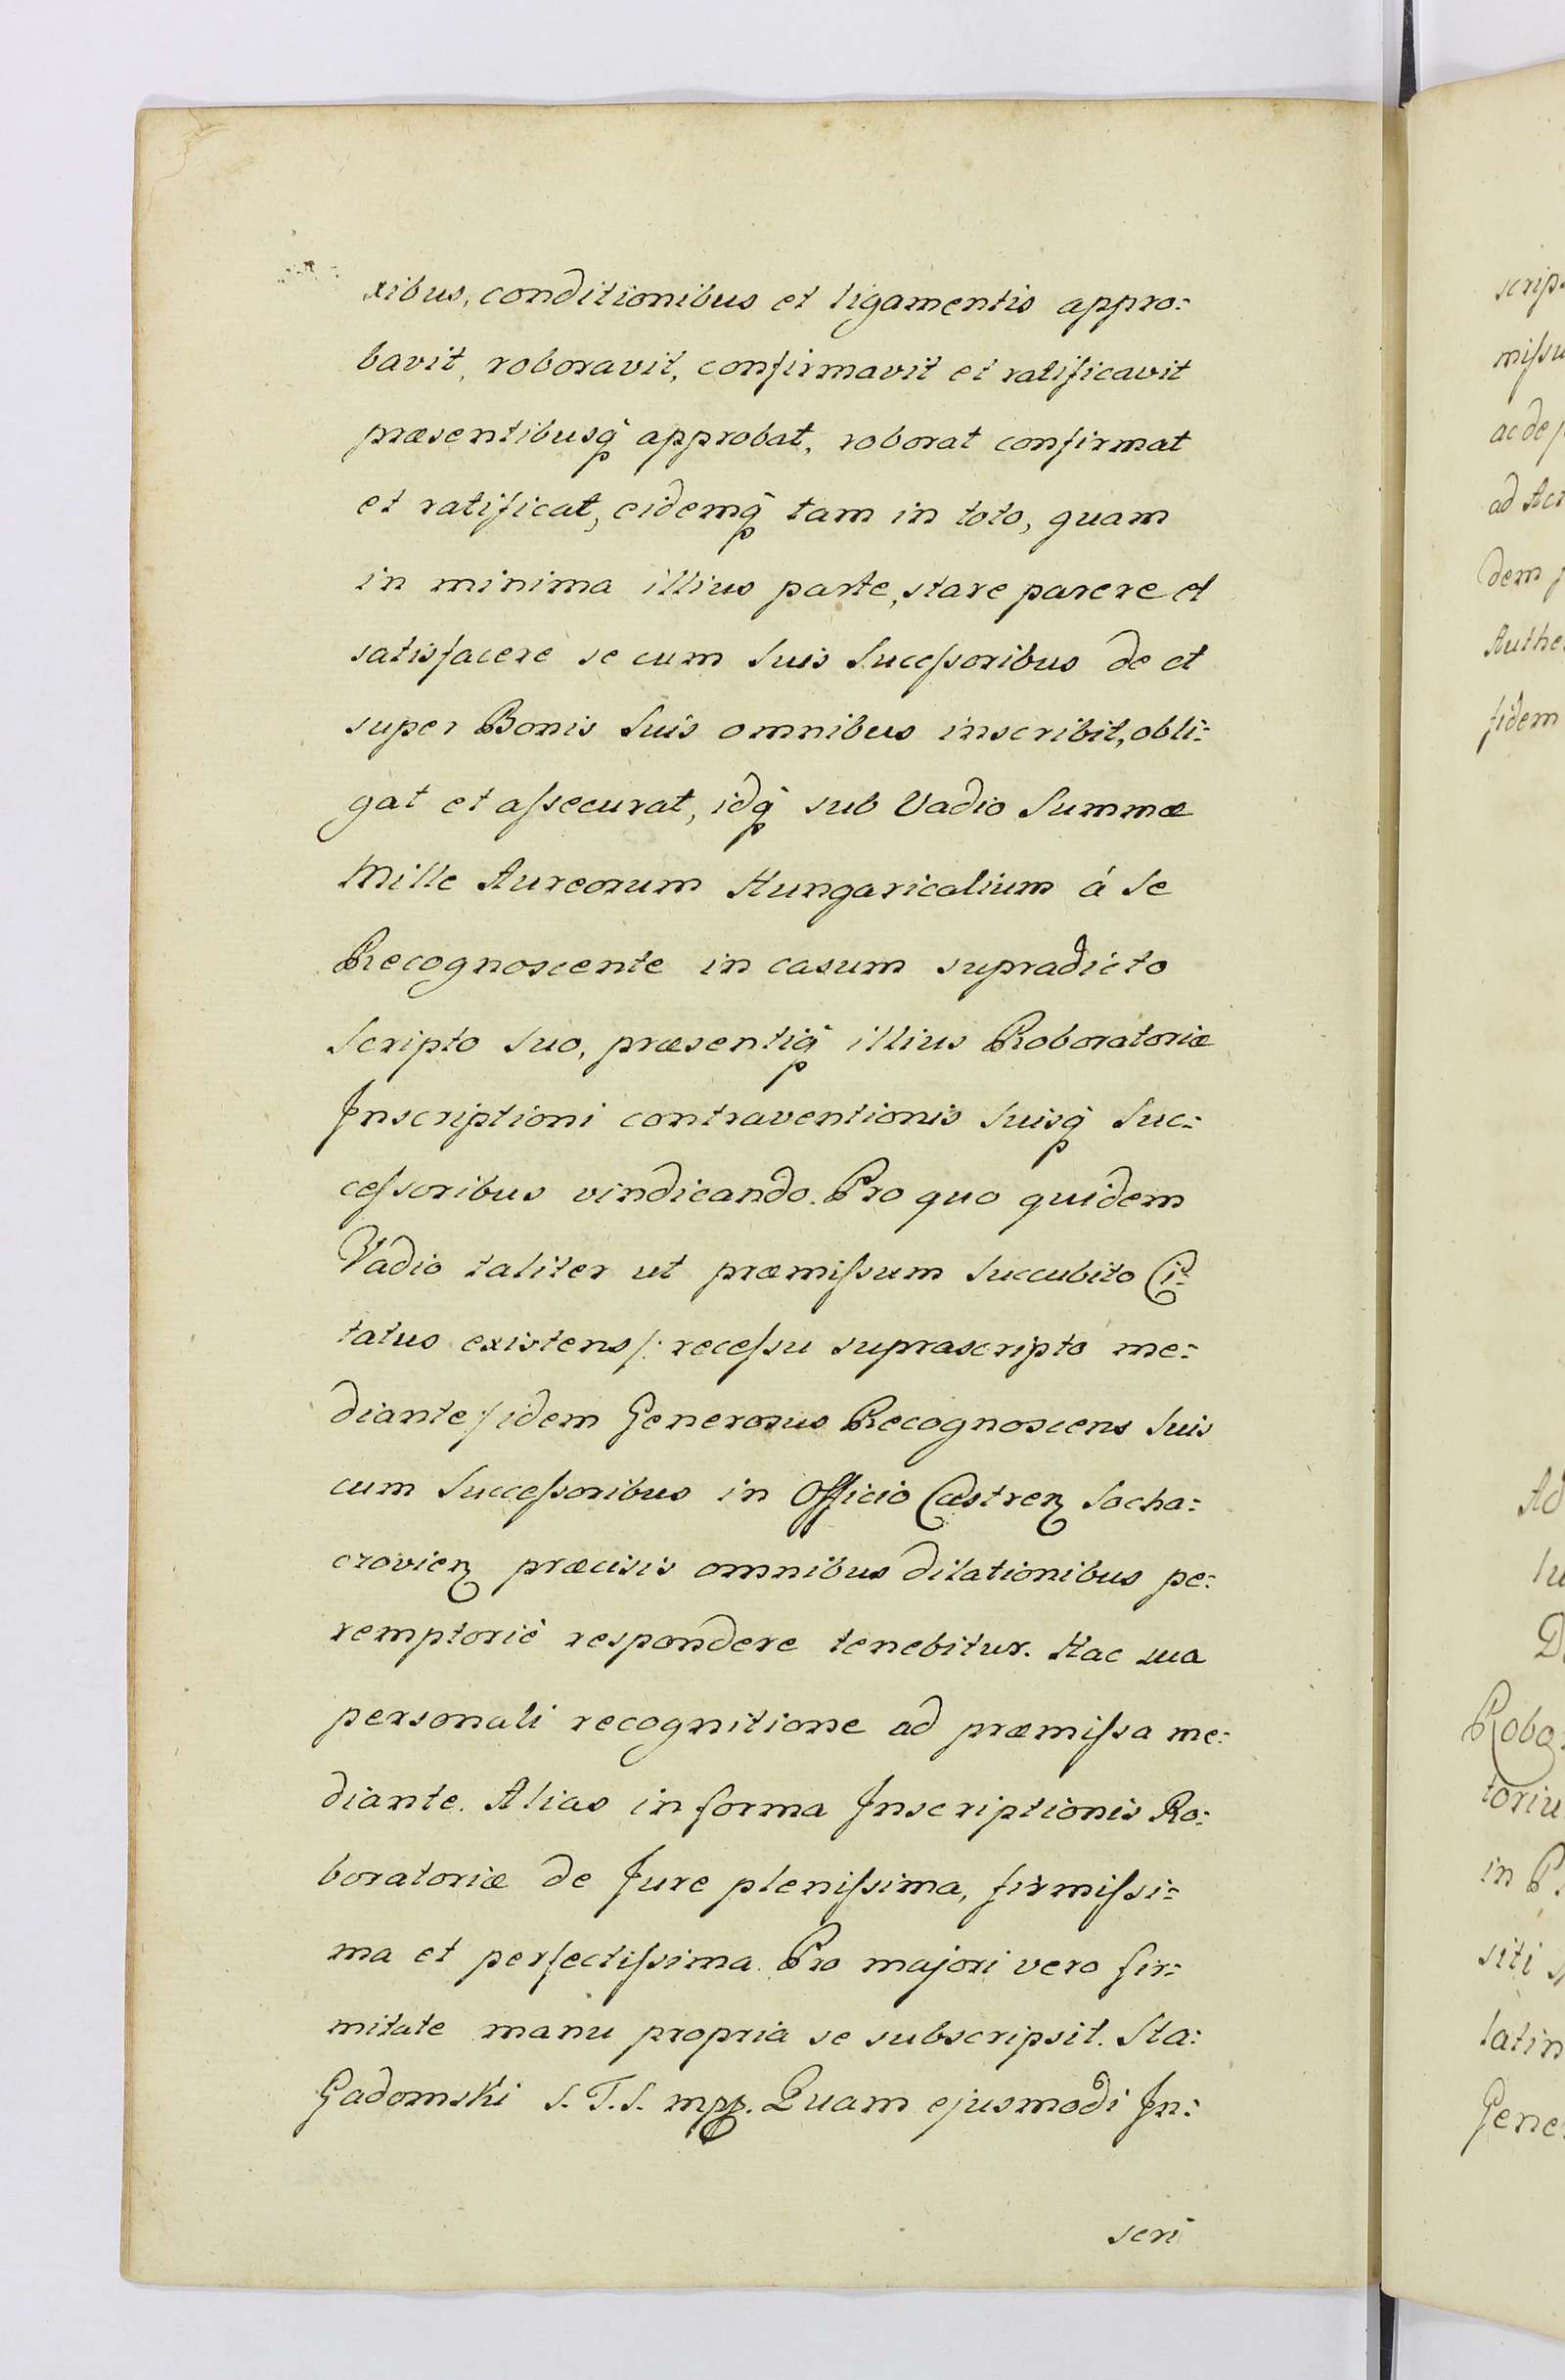 xibus, conditionibus et ligamentis appro:
bavit, roboravit, confirmavit et ratificavit
præsentibusq̃ approbat, roborat confirmat
et ratificat, eidemq̃ tam in toto, quam
in minima illius parte, stare parere et
satisfacere se cum Suis Succeſsoribus de et
super Bonis Suis omnibus inscribit, obli:
gat et aſsecurat, idq̃ sub Vadio Summæ
Mille Aureorum Hungaricalium á Se
Recognoscente in casum supradicto
Scripto Suo, præsentiq̃ illius Roboratoriæ
Inscriptioni contraventionis Suisq̃ Suc:
ceſsoribus vindicando. Pro quo quidem
Vadio taliter ut præmiſsum Succubito Ci:
tatus existens /: receſsu suprascripto me:
diante :/ idem Generosus Recognoscens Suis
cum Succeſsoribus in Officio Castren̄ Socha:
czovien̄ præcisis omnibus dilationibus pe:
remptorié respondere tenebitur. Hac sua
personali recognitione ad præmiſsa me:
diante. Alias in forma Inscriptionis Ro:
boratoriæ de Jure pleniſsima, firmiſsi:
ma et perfectiſsima. Pro majori vero fir:
mitate manu propria se subscripsit. Sta:
Gadomski S. T. S. mpp. Quam ejusmodi In:
scri
scrip
miſsu
ac de
ad Act
dem
Authe
fidem
Ad
Robo:
toriu
in P
siti
latin
Gene: